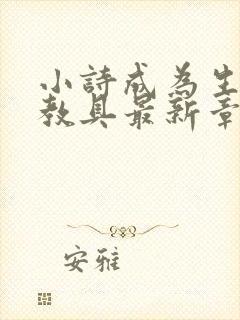 小詩成為生
教具最新章
安雅